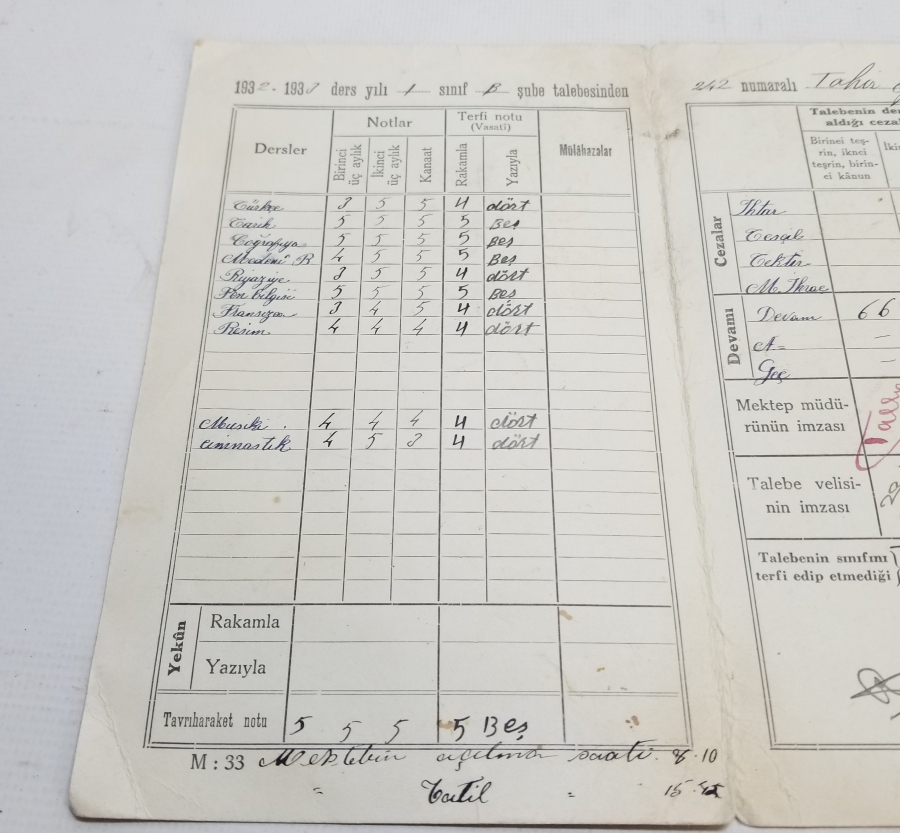 1932-1933 ders yılı 1 sınıf B şube talebesinden
Dersler
Notlar
Terfi notu
(Vasatî)
Mülâhazalar
Birinci üç aylık
İkinci üç aylık
Kanaat
Rakamla
Yazıyla
Türkçe 3 5 5 4 dört
Tarih 5 5 5 5 Beş
Coğrafya 5 5 5 5 Beş
Medenî B 4 5 5 5 Beş
Riyaziye 3 5 5 4 dört
Fen bilgisi 5 5 5 5 Beş
Fransızca 3 4 5 4 dört
Resim 4 4 4 4 dört
Musiki 4 4 4 4 dört
cimnastik 4 5 3 4 dört
Yekûn
Rakamla
Yazıyla
Tavrıharaket notu 5 5 5 5 Beş
M : 33 Mektebin açılma saati 8.10
" Tatil "
242 numaralı Tahir
Talebenin der
aldığı ceza
Birinci teş-
rin, iknci
teşrin, birin-
ci kânun
İki
Cezalar
İhtar
Tescil
Tektir
M. İhrac
Devamı
Devam 66
A= –
Geç –
Mektep müdü-
rünün imzası
Talebe velisi-
nin imzası
Talebenin sınıfını
terfi edip etmediği